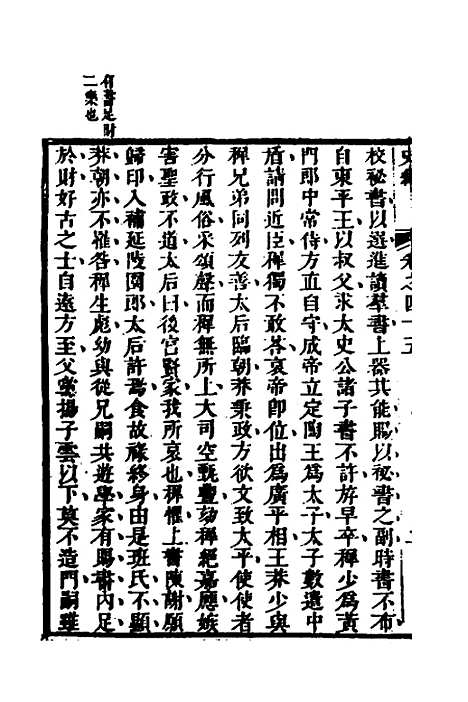 有書足財
二樂也
卷之四十五
校祕書以選進讀羣書上器其能賜以祕書之副時書不布
自東平王以叔父求太史公諸子書不許斿早卒穉少為黃
門郎中常侍方直自守成帝立定陶王為太子太子數遣中
盾請問近臣穉獨不敢荅哀帝即位出為廣平相王莽少與
穉兄弟同列友善太后臨朝莽秉政方欲文致大平使使者
分行風俗采頌聲而穉無所上大司空甄豐劾穉絕嘉應嫉
害聖政不道太后曰後宮賢家我所哀也穉懼上書陳謝願
歸印入補延陵園郎太后許焉食故祿終身由是班氏不顯
莽朝亦不罹咎穉生彪幼與從兄嗣共遊學家有賜書內足
於財好古之士自遠方至父黨揚子雲以下莫不造門嗣雖